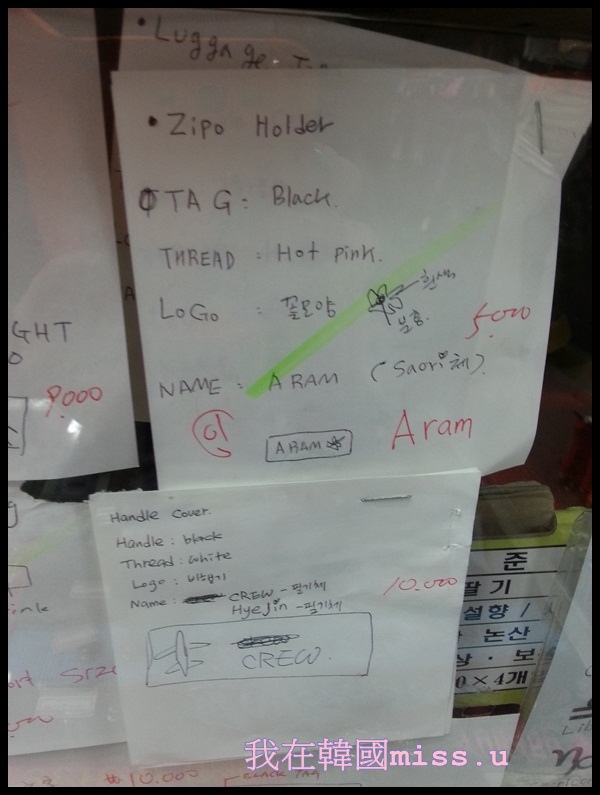 • Luggage
• Zipo Holder
TAG : Black.
THREAD : Hot pink.
LOGO : 꽃모양
흰색
분홍.
5000
NAME : ARAM (Saori체).
이
ARAM
Aram
GHT
9.000
Handle Cover.
Handle : black
Thread : white
Logo : 비행기
Name : CREW - 필기체
HyeJin - 필기체
10.000
CREW
ink
Size
준
딸기
설향 /
논산
상 · 보
0×4개
10.000
BLACK TAG
我在韓國miss.u